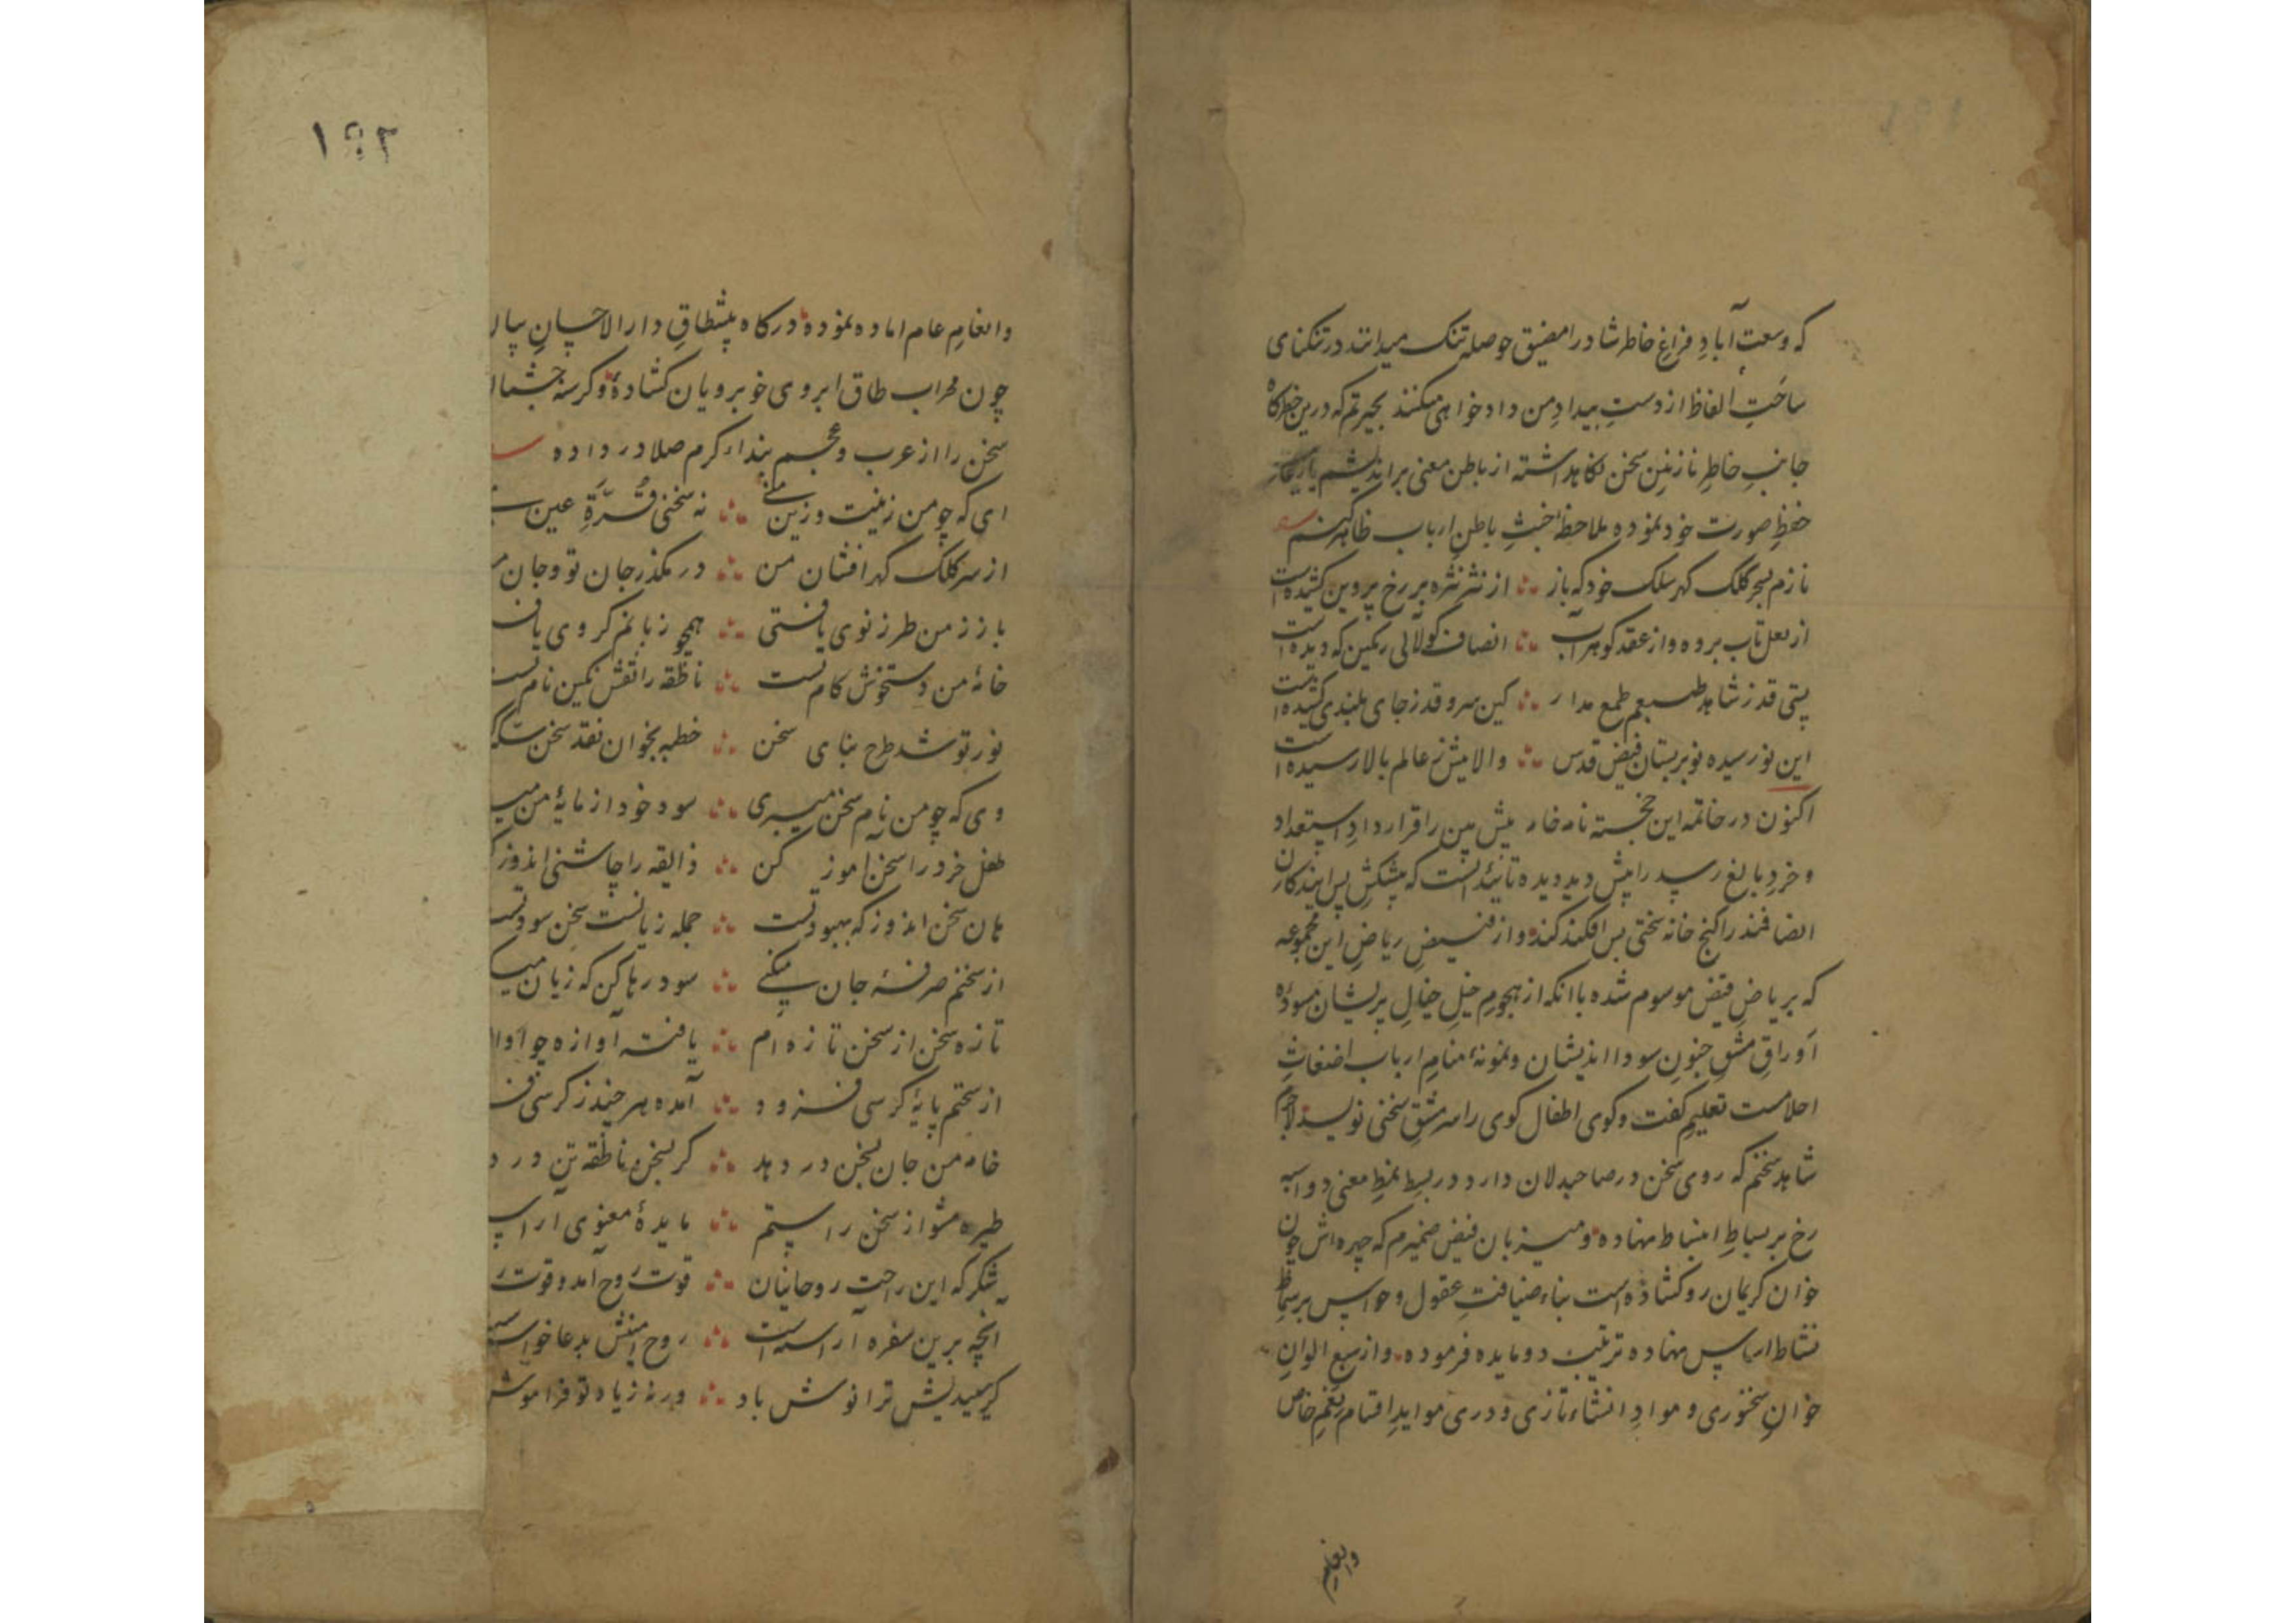 که وسعت آبادِ فراغِ خاطر شاد را مضیق حوصله تنک میدانند در تنکنای
ساحَتِ الفاظ از دستِ بیدادِ من داد خواهی میکنند بحیرتم که درین خطرکاه
جانبِ خاطرِ نازنینِ سخن نکاهداشته از باطن معنی براندیشم یا رعایت
حفظِ صورت خود نموده ملاحظهٔ خبثِ باطنِ ارباب ظاهر کنم
نازم بسحر کلک کهر سلک خود که باز ؞ از نثر نثره بر رخ پروین کشیده است
از لعل تاب برده و از عقد کوهر آب ؞ انصاف کو لآلی رنکین که دیده است
پستی قدر ز شاهد طبعم طمع مدار ؞ کین سرو قد ز جای بلندی کشیده است
این نورسیده نوبر بستان فیض قدس ؞ والامنش ز عالم بالا رسیده است
اکنون در خاتمه این خجسته نامه خامه پیش بین را قرار دادِ استعداد
و خردِ بالغ رسید را پیش دید دیده تائید آنست که پیشکش پس آیندکان
انصافمند را کنج خانه سختی پس افکند کند و از فیضِ ریاضِ این مجموعه
که بریاضِ فیض موسوم شده با آنکه از هجومِ خیلِ خیالِ پریشان مسودهٔ
اوراقِ مشقِ جنونِ سودا اندیشان و نمونهٔ منامِ ارباب اضغاثِ
احلامست تعلیم کفت و کوی اطفال کوی را سرمشقِ سخنی نویسد لاجرم
شاهد سخنم که روی سخن در صاحبدلان دارد در بسطِ نمطِ معنی دو اسبه
رخ بر بساطِ انبساط نهاده و میزبان فیض ضمیرم که چهره اش چون
خوان کریمان رو کشاده است بناء ضیافتِ عقول و حواس بر سماط
نشاط اساس نهاده ترتیب دو مایده فرموده و از سبع الوانِ
خوانِ سخنوری و موادِ انشاء تازی و دری مواید اقسام نِعَمِ خاص
وانعام
۱۹۲
وانعامِ عام اماده نموده درکاه پیشطاقِ دارالاحسانِ
چون محراب طاق ابروی خوبرویان کشاده و کرسنه چشمان
سخن را از عرب و عجم بنداء کرم صلا در داده
ای که چو من زینت و زین منی ؞ نه سخنی قُرّةِ عین
از سر کلک کهر افشان من ؞ در مکذر جان تو و جان
باز ز من طرز نوی یافتی ؞ همچو زبانم کروی
خانهٔ من دستخوش کام تست ؞ ناطقه را نقش نکین نام تست
نور تو شد طرح بنای سخن ؞ خطبه بخوان نقد سخن
وی که چو من نام سخن میبری ؞ سود خود از مایهٔ من
طفل خرد را سخن آموز کن ؞ ذایقه را چاشنی اندوز
هان سخن اندوز که بهبود تست ؞ جمله زیانست سخن سود تست
از سخنم صرفهٔ جان میکنی ؞ سود رها کن که زیان
تازه سخن از سخن تازه ام ؞ یافته آوازه چو
از سخنم پایهٔ کرسی فزود ؞ آمده هر چند ز کرسی
خامه من جان بسخن در دهد ؞ کر بسخن ناطقه تن در
طیره مشو از سخن راستم ؞ مایدهٔ معنوی
شکر که این راحت روحانیان ؞ قوت روح آمد و قوت
آنچه برین سفره آراسته است ؞ روح امینش بدعا
کر بچشیدیش ترا نوش باد ؞ ورنه ز یاد تو فراموش